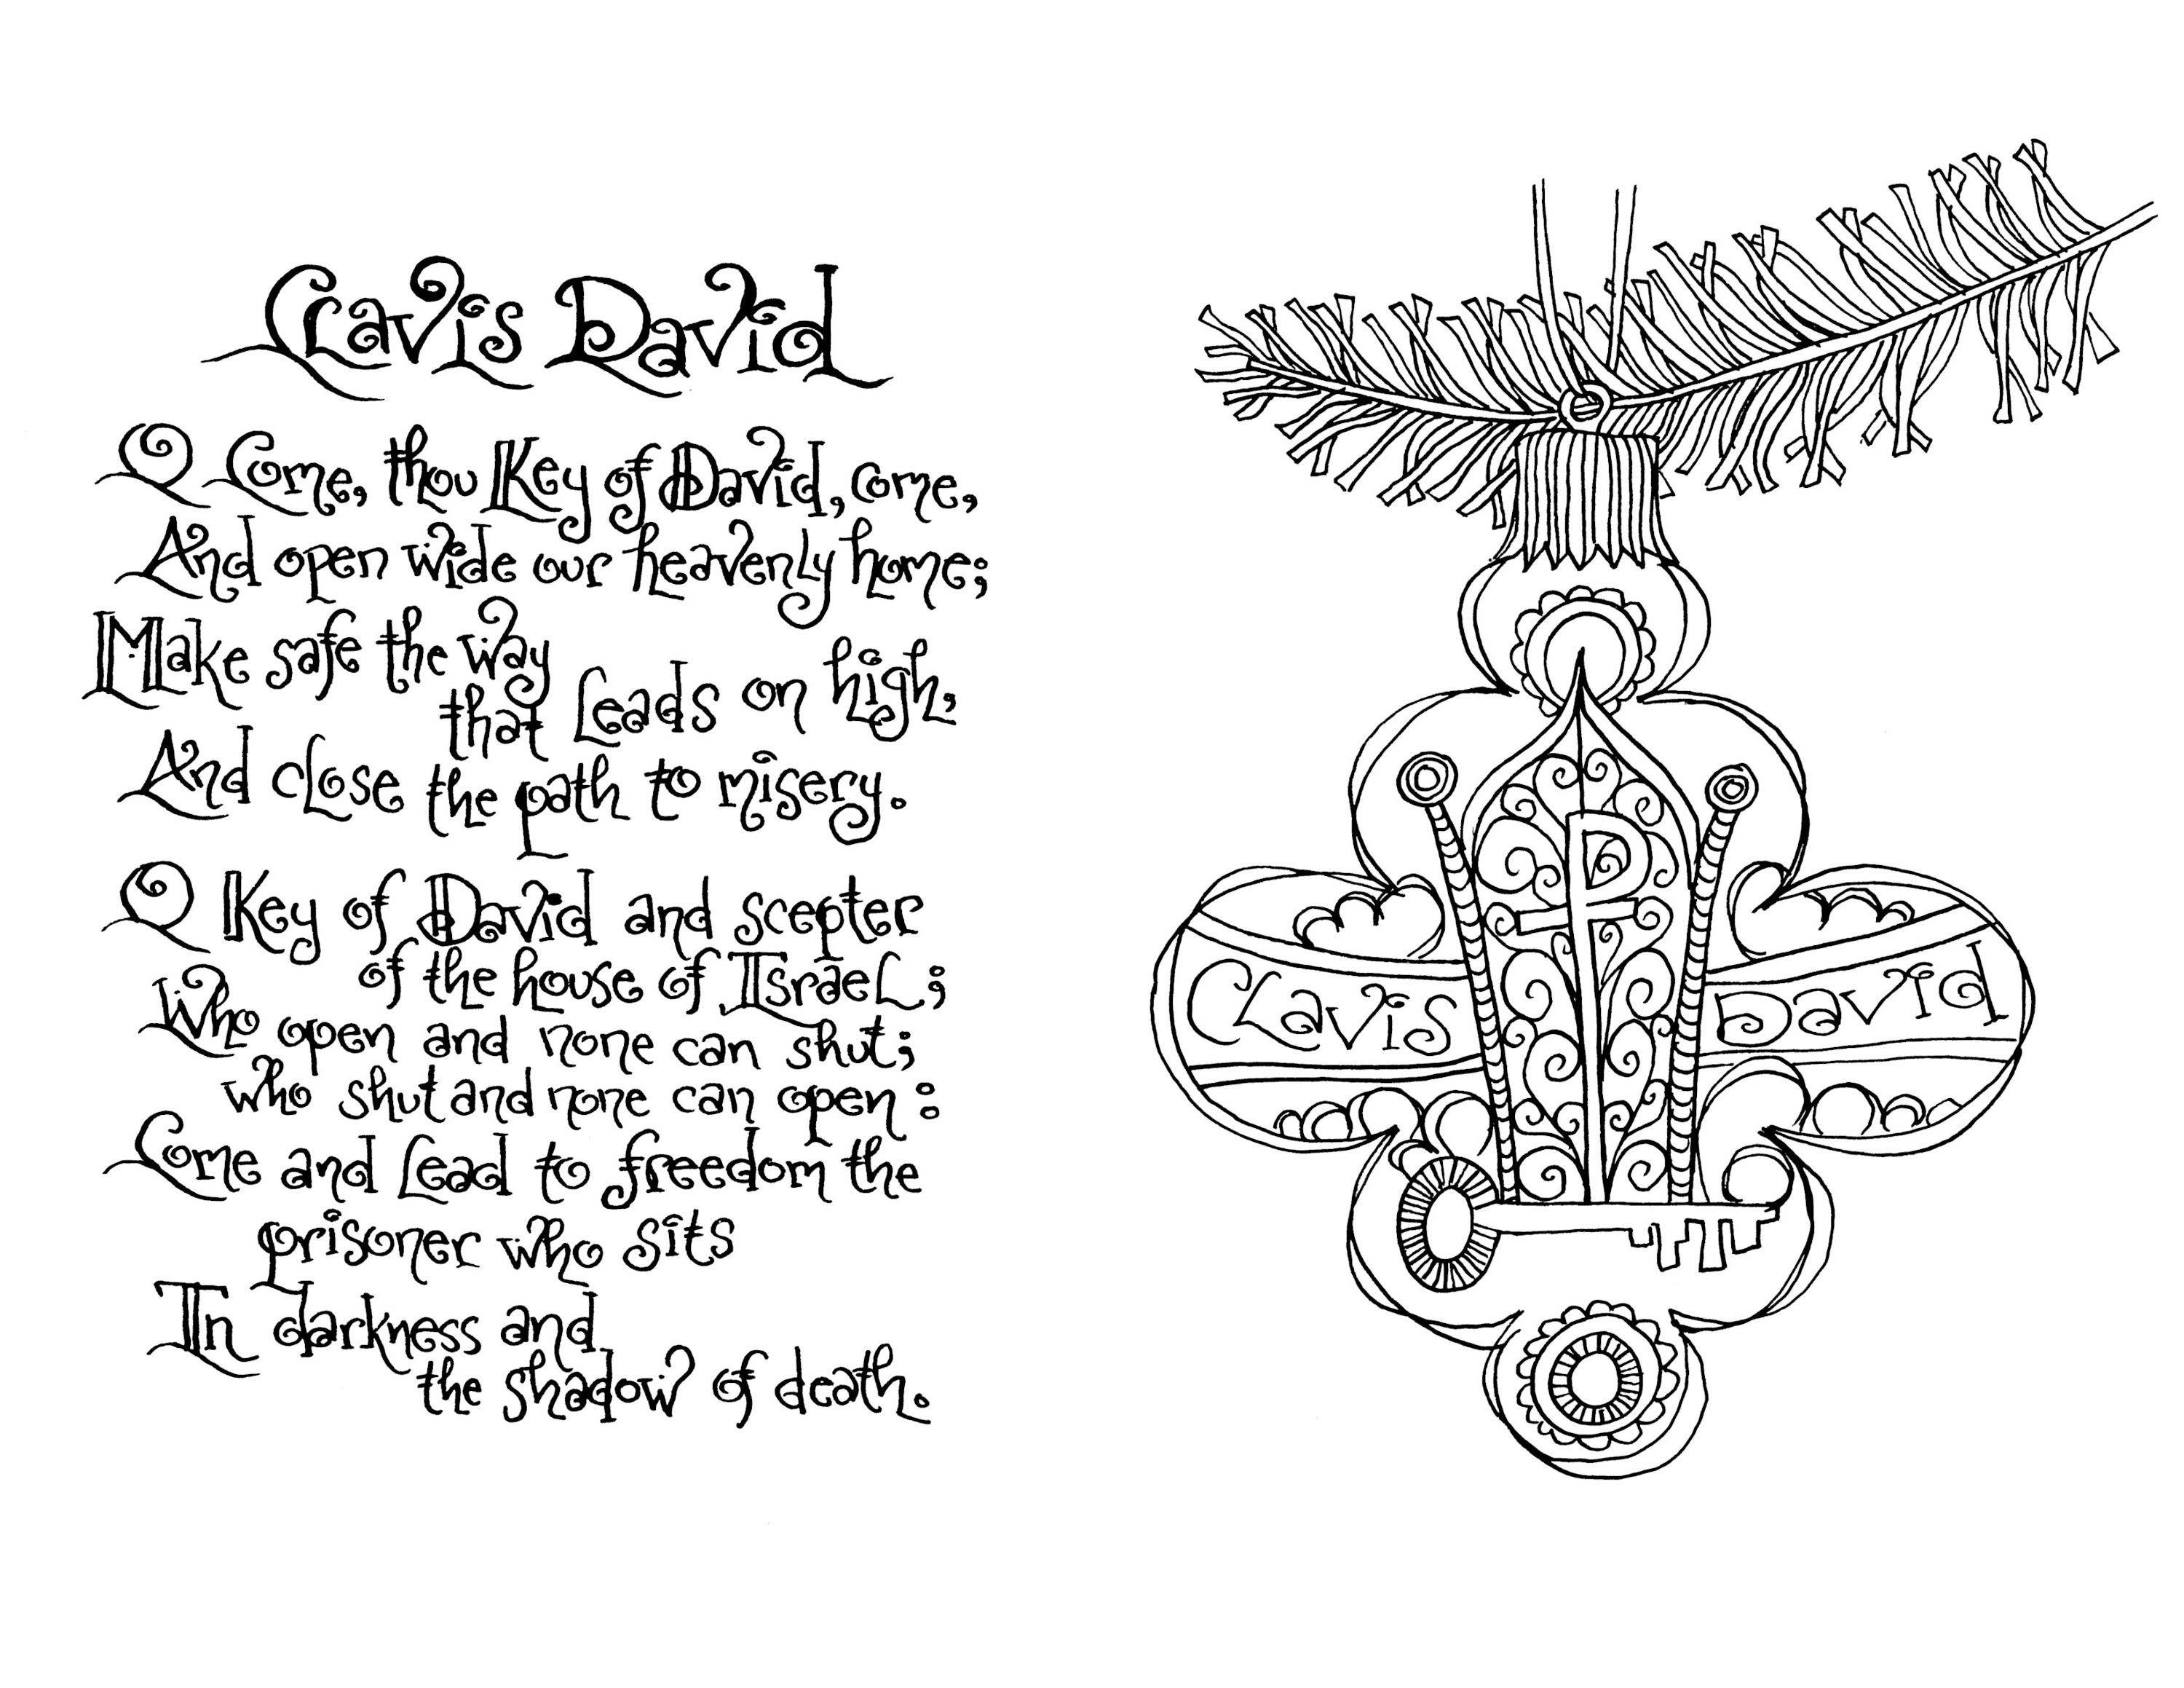 Clavis David
O Come, thou Key of David, come,
And open wide our heavenly home;
Make safe the way
that leads on high,
And close the path to misery.
O Key of David and scepter
of the house of Israel;
Who open and none can shut;
who shut and none can open:
Come and lead to freedom the
prisoner who sits
In darkness and
the shadow of death.
Clavis David